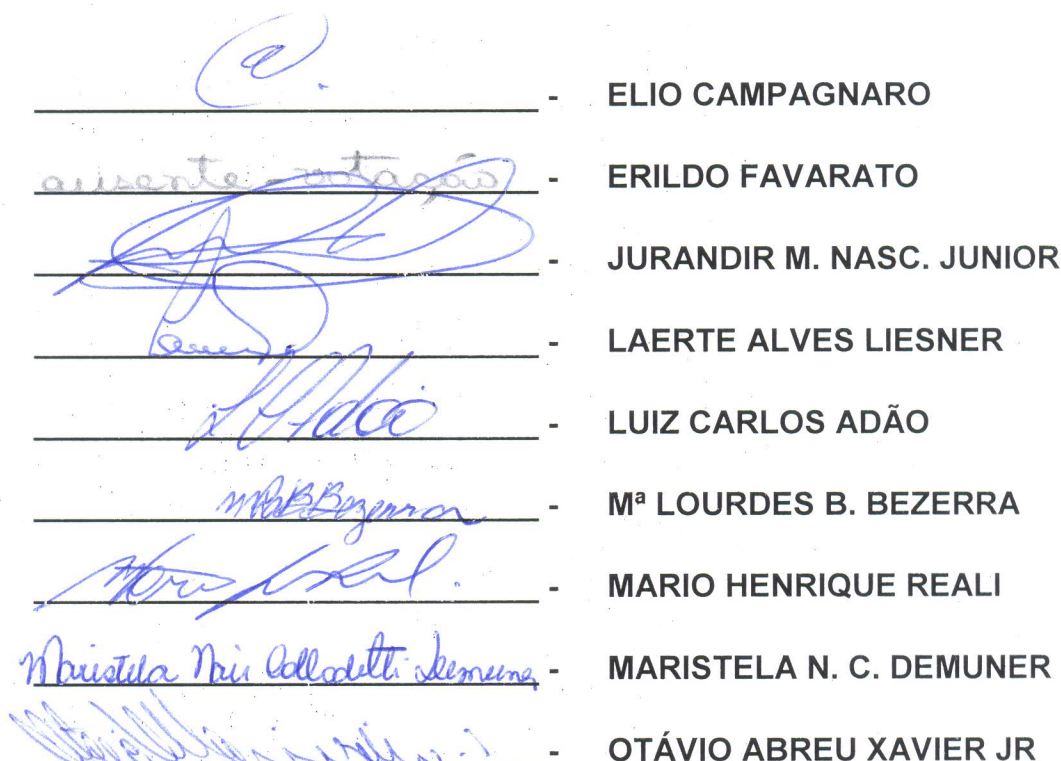 - ELIO CAMPAGNARO
ausente - votação - ERILDO FAVARATO
- JURANDIR M. NASC. JUNIOR
- LAERTE ALVES LIESNER
- LUIZ CARLOS ADÃO
Bezerra - Mª LOURDES B. BEZERRA
- MARIO HENRIQUE REALI
Maristela Nair Collodetti Demuner - MARISTELA N. C. DEMUNER
- OTÁVIO ABREU XAVIER JR